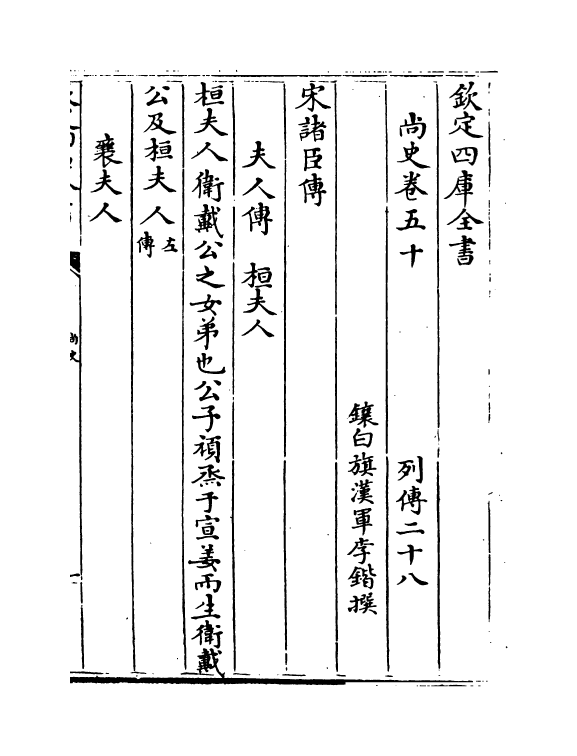 欽定四庫全書
尚史卷五十 列傳二十八
鑲白旗漢軍李鍇撰
宋諸臣傳
夫人傳 桓夫人
桓夫人衛戴公之女弟也公子頑烝于宣姜而生衛戴
公及桓夫人左傳
襄夫人
尚史